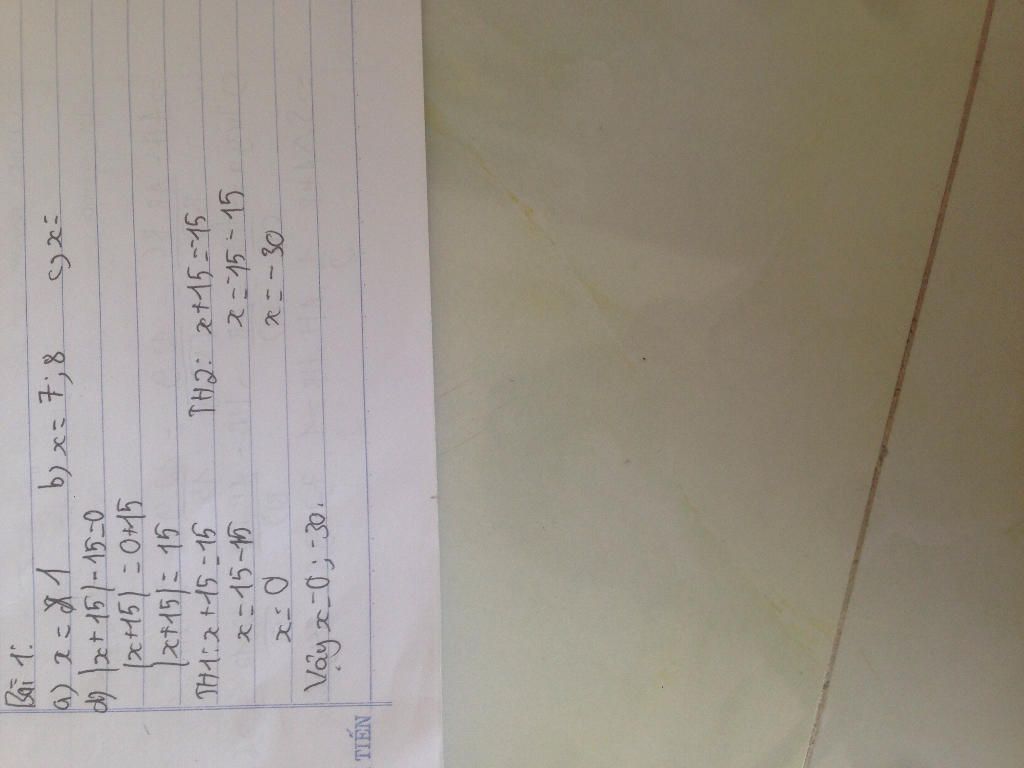 Bài 1:
a) x = 1 b) x = 7; 8 c) x =
d) |x + 15| - 15 = 0
|x + 15| = 0 + 15
|x + 15| = 15
TH1: x + 15 = 15 TH2: x + 15 = -15
x = 15 - 15 x = -15 - 15
x = 0 x = -30
Vậy x = 0; -30.
TIẾN